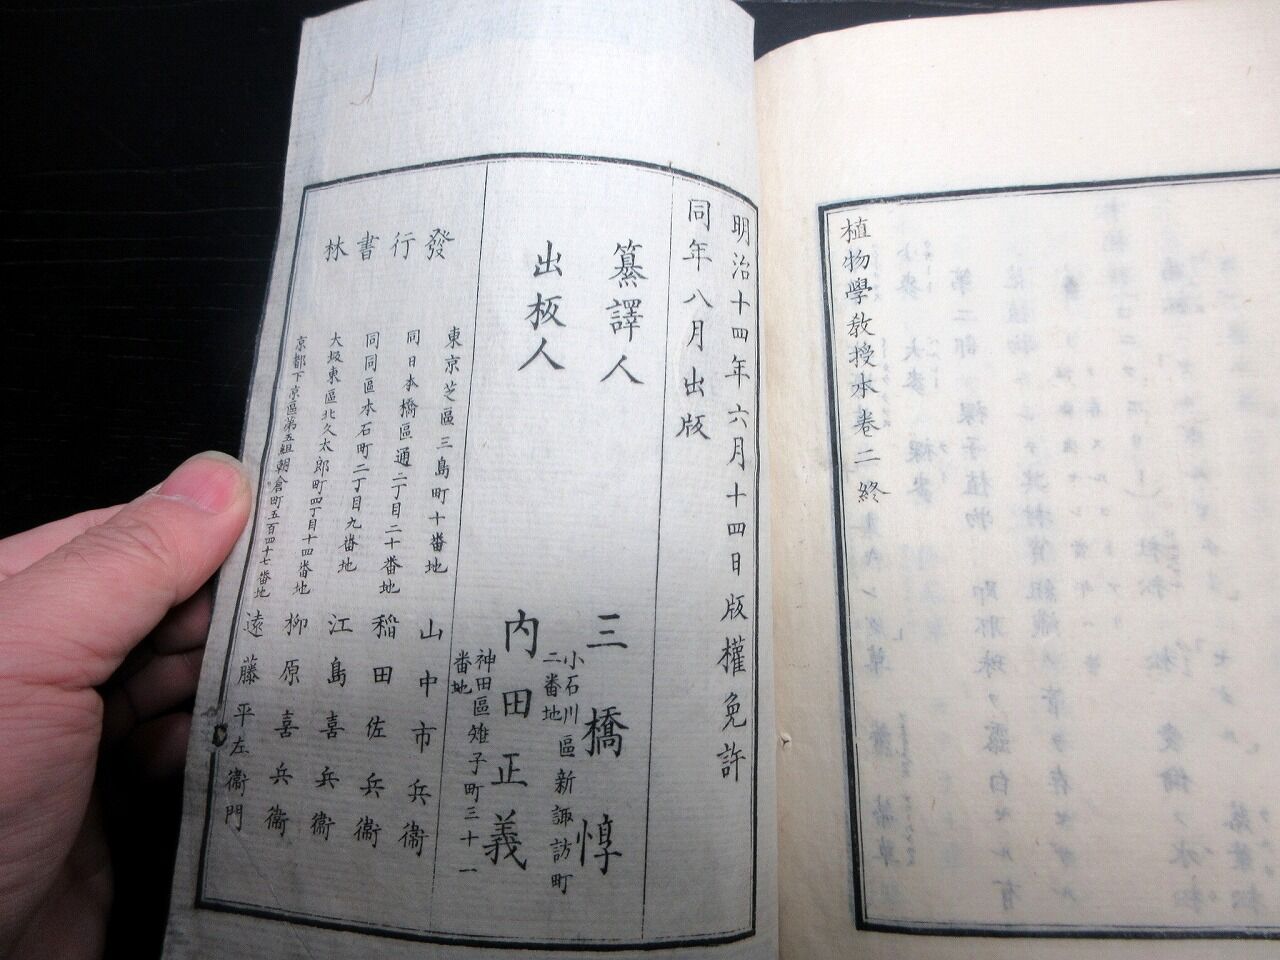 植物學教授本卷二終
明治十四年六月十四日版權免許
同年八月出版
纂譯人 三橋惇
小石川區新諏訪町二番地
出板人 内田正義
神田區雉子町三十一番地
發行書林
東京芝區三島町十番地 山中市兵衞
同日本橋區通二丁目二十番地 稲田佐兵衞
同同區本石町二丁目九番地 江島喜兵衞
大坂東區北久太郎町四丁目十四番地 柳原喜兵衞
京都下京區第五組朝倉町五百四十七番地 遠藤平左衞門